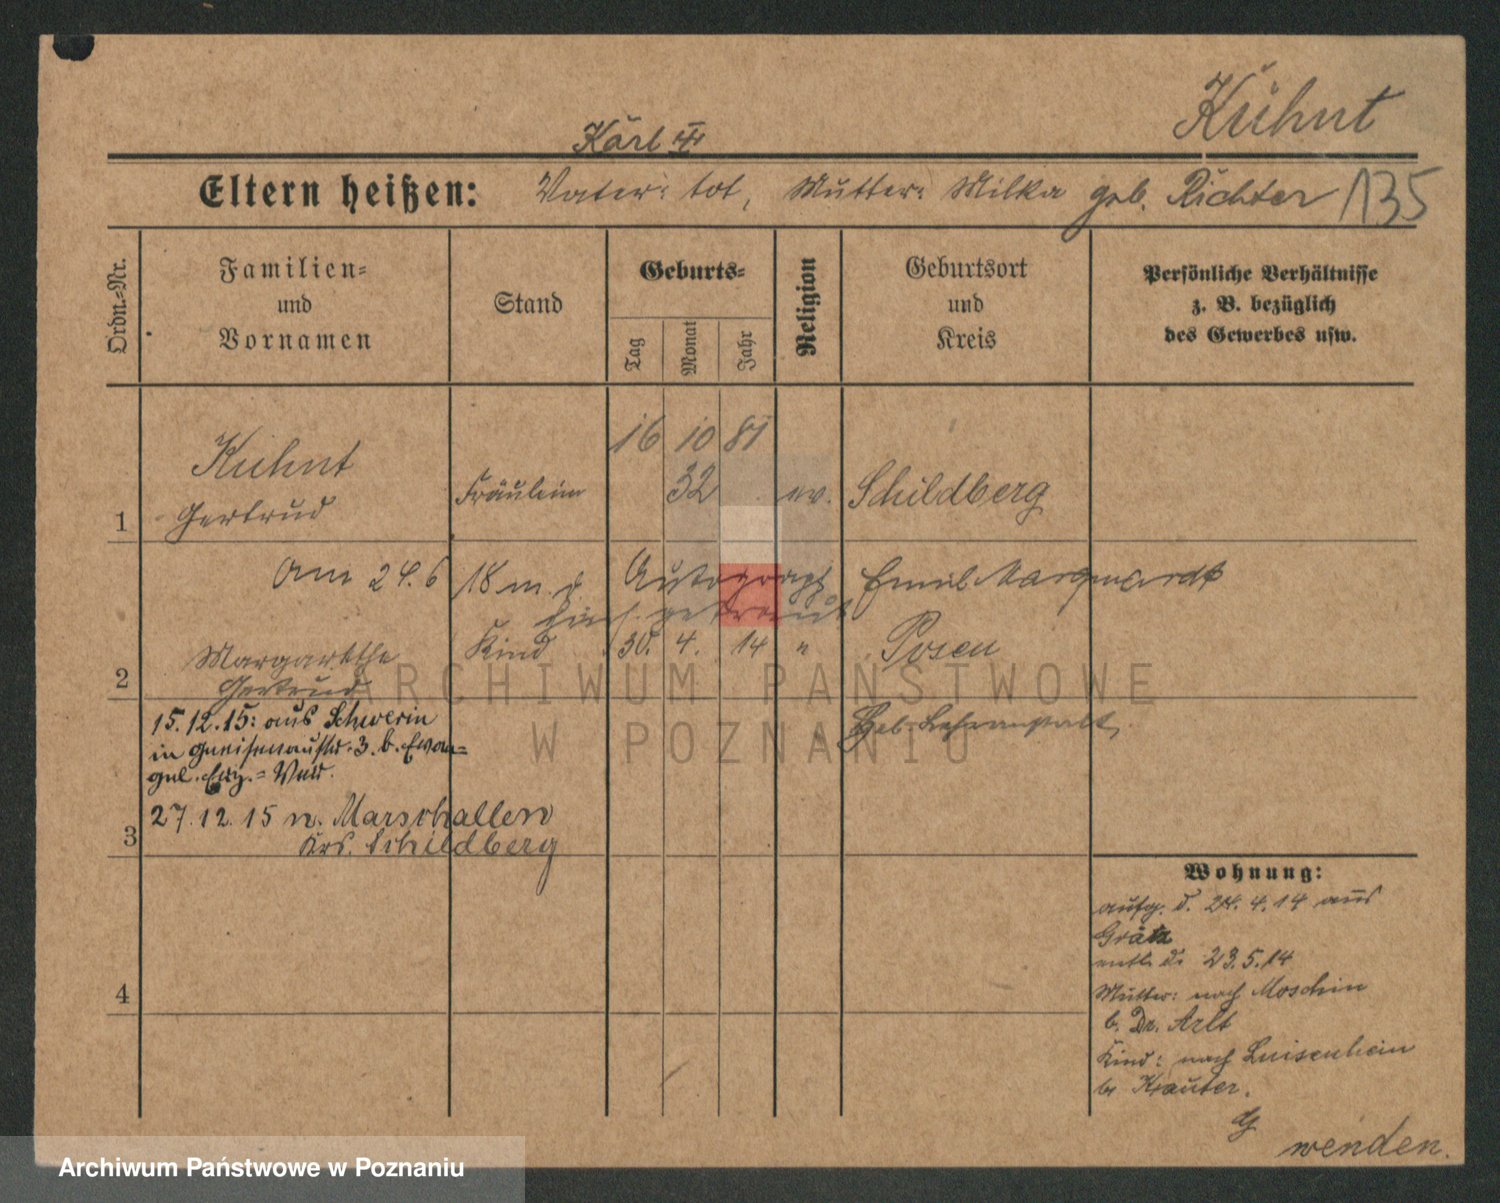 Kühnt
Karl III
Eltern heißen: Vater: tot, Mutter: Milka geb. Richter 135
Ordn.-Nr.
Familien-
und
Vornamen
Stand
Geburts-
Tag
Monat
Jahr
Religion
Geburtsort
und
Kreis
Persönliche Verhältnisse
z. B. bezüglich
des Gewerbes usw.
16 10 81
Kuhnt
Fräulein 32 ev. Schildberg
1 Gertrud
Am 24.6 18 m. d. Emil Marquardt
getraut
Kind 30. 4. 14 " Posen
Margarethe
2 Gertrud
ARCHIWUM PAŃSTWOWE
W POZNANIU
15.12.15: aus Schwerin
in Gneisenaustr. 3. b. Evan=
gel. Erz.=Ver.
Geb. Lehranstalt
27.12.15 n. Marschallen
3 Krs. Schildberg
Wohnung:
aufg. d. 24.4.14 aus
Grätz
entl. d. 23.5.14
4 Mutter: nach Moschin
b. Dr. Arlt
Kind: nach Luisenhein
b. Krauter.
wenden.
Archiwum Państwowe w Poznaniu